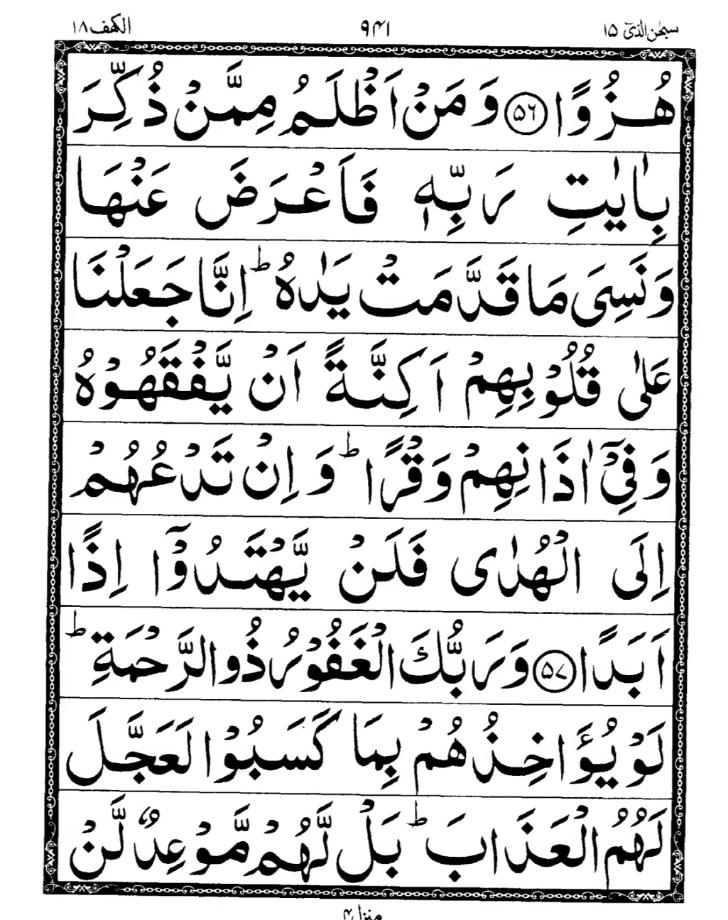 سبحٰن الذیٓ ١٥ ٩٤١ الکهف ١٨
هُزُوًا ﴿۵۶﴾ وَمَنْ اَظْلَمُ مِمَّنْ ذُكِّرَ
بِاٰيٰتِ رَبِّهٖ فَاَعْرَضَ عَنْهَا
وَنَسِىَ مَا قَدَّمَتْ يَدٰهُ ؕ اِنَّا جَعَلْنَا
عَلٰى قُلُوْبِهِمْ اَكِنَّةً اَنْ يَّفْقَهُوْهُ
وَفِىْۤ اٰذَانِهِمْ وَقْرًا ؕ وَاِنْ تَدْعُهُمْ
اِلَى الْهُدٰى فَلَنْ يَّهْتَدُوْۤا اِذًا
اَبَدًا ﴿۵۷﴾ وَرَبُّكَ الْغَفُوْرُ ذُو الرَّحْمَةِ ؕ
لَوْ يُؤَاخِذُهُمْ بِمَا كَسَبُوْا لَعَجَّلَ
لَهُمُ الْعَذَابَ ؕ بَلْ لَّهُمْ مَّوْعِدٌ لَّنْ
منزل ۴